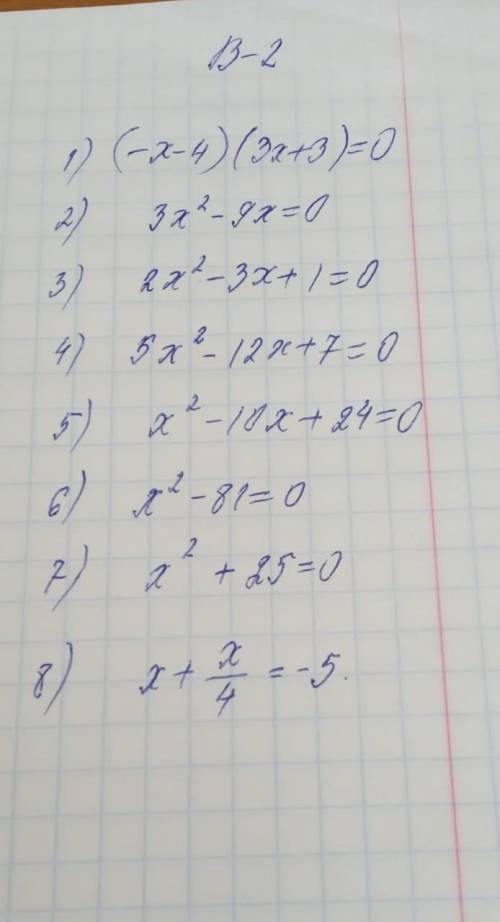 В-2
1) (-x-4)(3x+3)=0
2) 3x²-9x=0
3) 2x²-3x+1=0
4) 5x²-12x+7=0
5) x²-10x+24=0
6) x²-81=0
7) x²+25=0
8) x+x/4=-5.